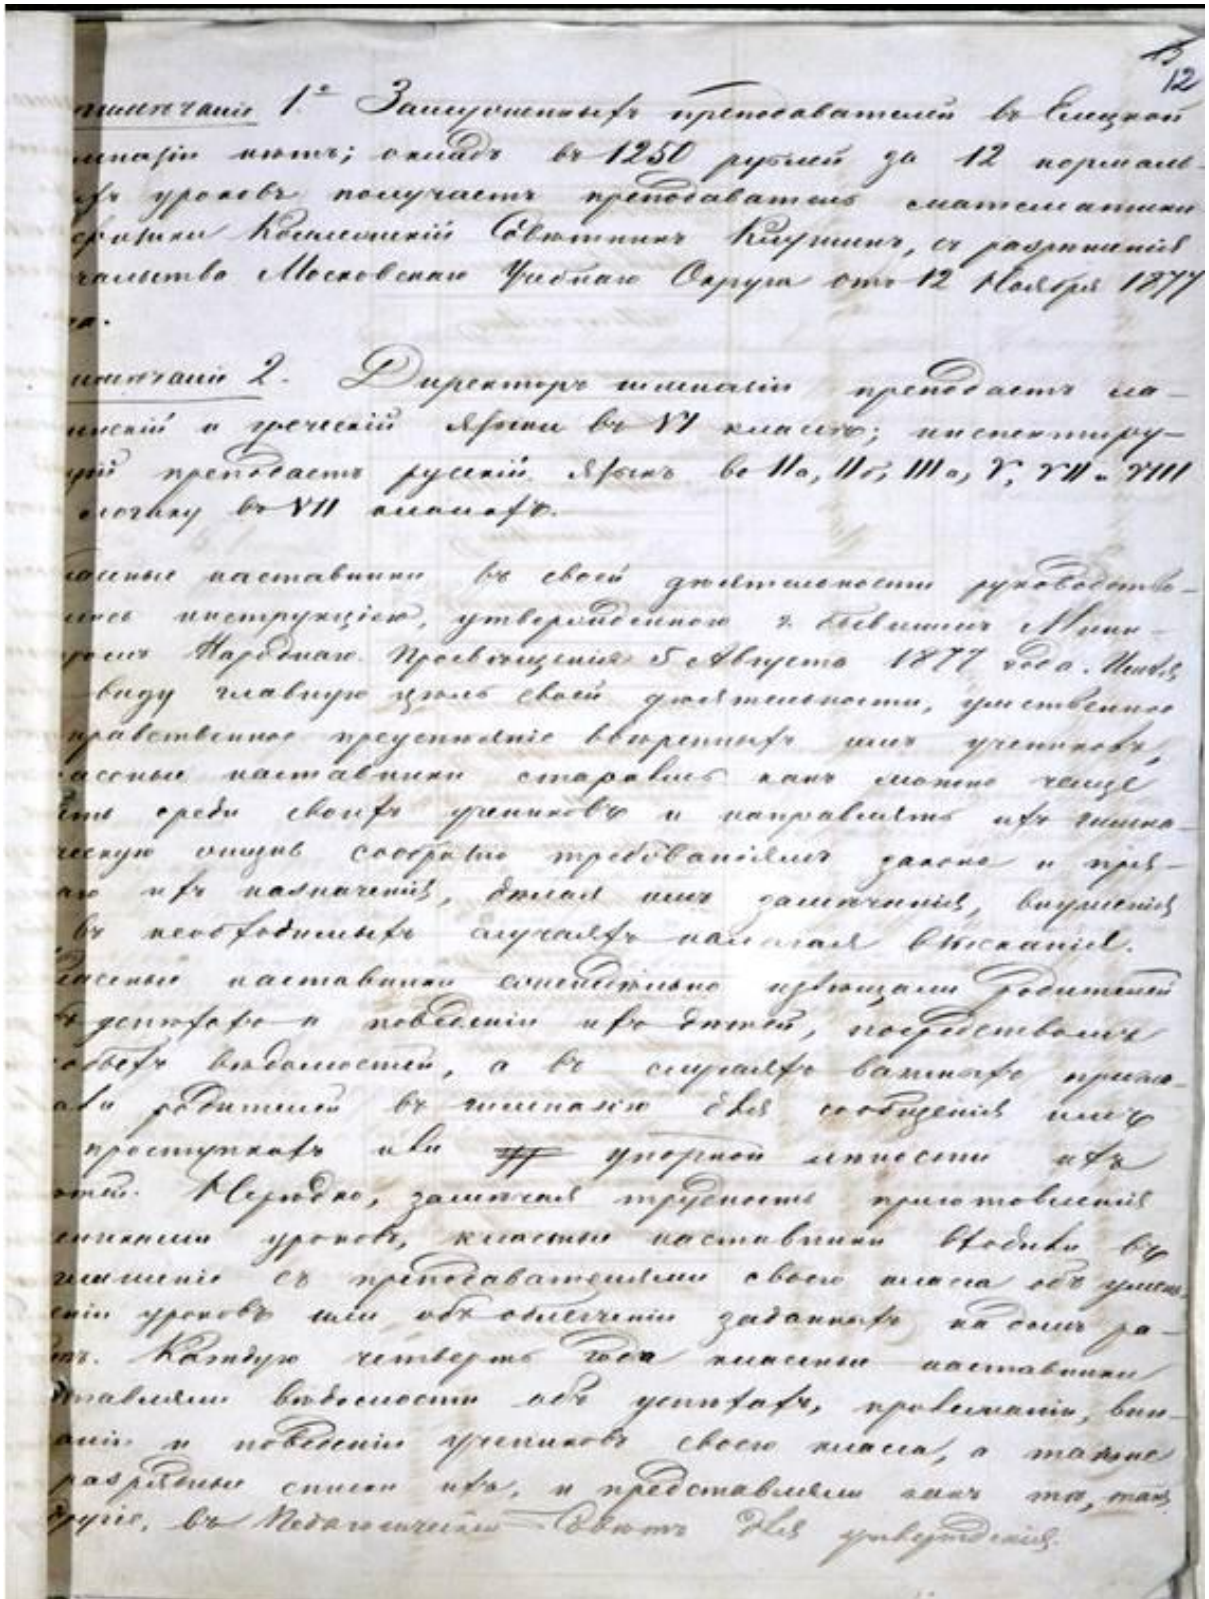 12
мѣчаніе 1е Замѣщенныхъ преподавателей въ Елецкой
мназіи нѣтъ; окладъ въ 1250 рублей за 12 нормаль-
хъ уроковъ получаетъ преподаватель математики
физики Коллежскій Совѣтникъ Киршинъ, съ разрѣшенія
чальства Московскаго Учебнаго Округа отъ 12 Ноября 1877
да.
имѣчаніе 2. Директоръ гимназіи преподаетъ ла-
инскій и греческій языки въ VI классѣ; инспектиру-
щій преподаетъ русскій языкъ во IIа, IIб, IIIа, V, VII и VIII
логику въ VII классахъ.
лассные наставники въ своей дѣятельности руководство-
лись инструкціею, утвержденною г. бывшимъ Мини-
ромъ Народнаго Просвѣщенія 5 Августа 1877 года. Имѣя
виду главную цѣль своей дѣятельности, умственное
нравственное преуспѣяніе ввѣренныхъ имъ учениковъ,
лассные наставники старались какъ можно чаще
ыть среди своихъ учениковъ и направлять ихъ гимна-
ческую жизнь сообразно требованіямъ закона и пря-
го ихъ назначенія, дѣлая имъ замѣчанія, внушенія
въ необходимыхъ случаяхъ налагая взысканія.
лассные наставники еженедѣльно извѣщали родителей
объ успѣхахъ и поведеніи ихъ дѣтей, посредствомъ
особыхъ вѣдомостей, а въ случаяхъ важныхъ пригла-
али родителей въ гимназію для сообщенія имъ
проступкахъ или упорной лѣности ихъ
ѣтей. Нерѣдко, замѣчая трудность приготовленія
чениками уроковъ, классные наставники входили въ
глашеніе съ преподавателями своего класса объ умень-
еніи уроковъ или объ облегченіи заданныхъ на домъ ра-
отъ. Каждую четверть года классные наставники
ставляли вѣдомости объ успѣхахъ, прилежаніи, вни-
аніи и поведеніи учениковъ своего класса, а также
разрядные списки ихъ, и представляли какъ тѣ, такъ
другіе, въ Педагогическій Совѣтъ для утвержденія.